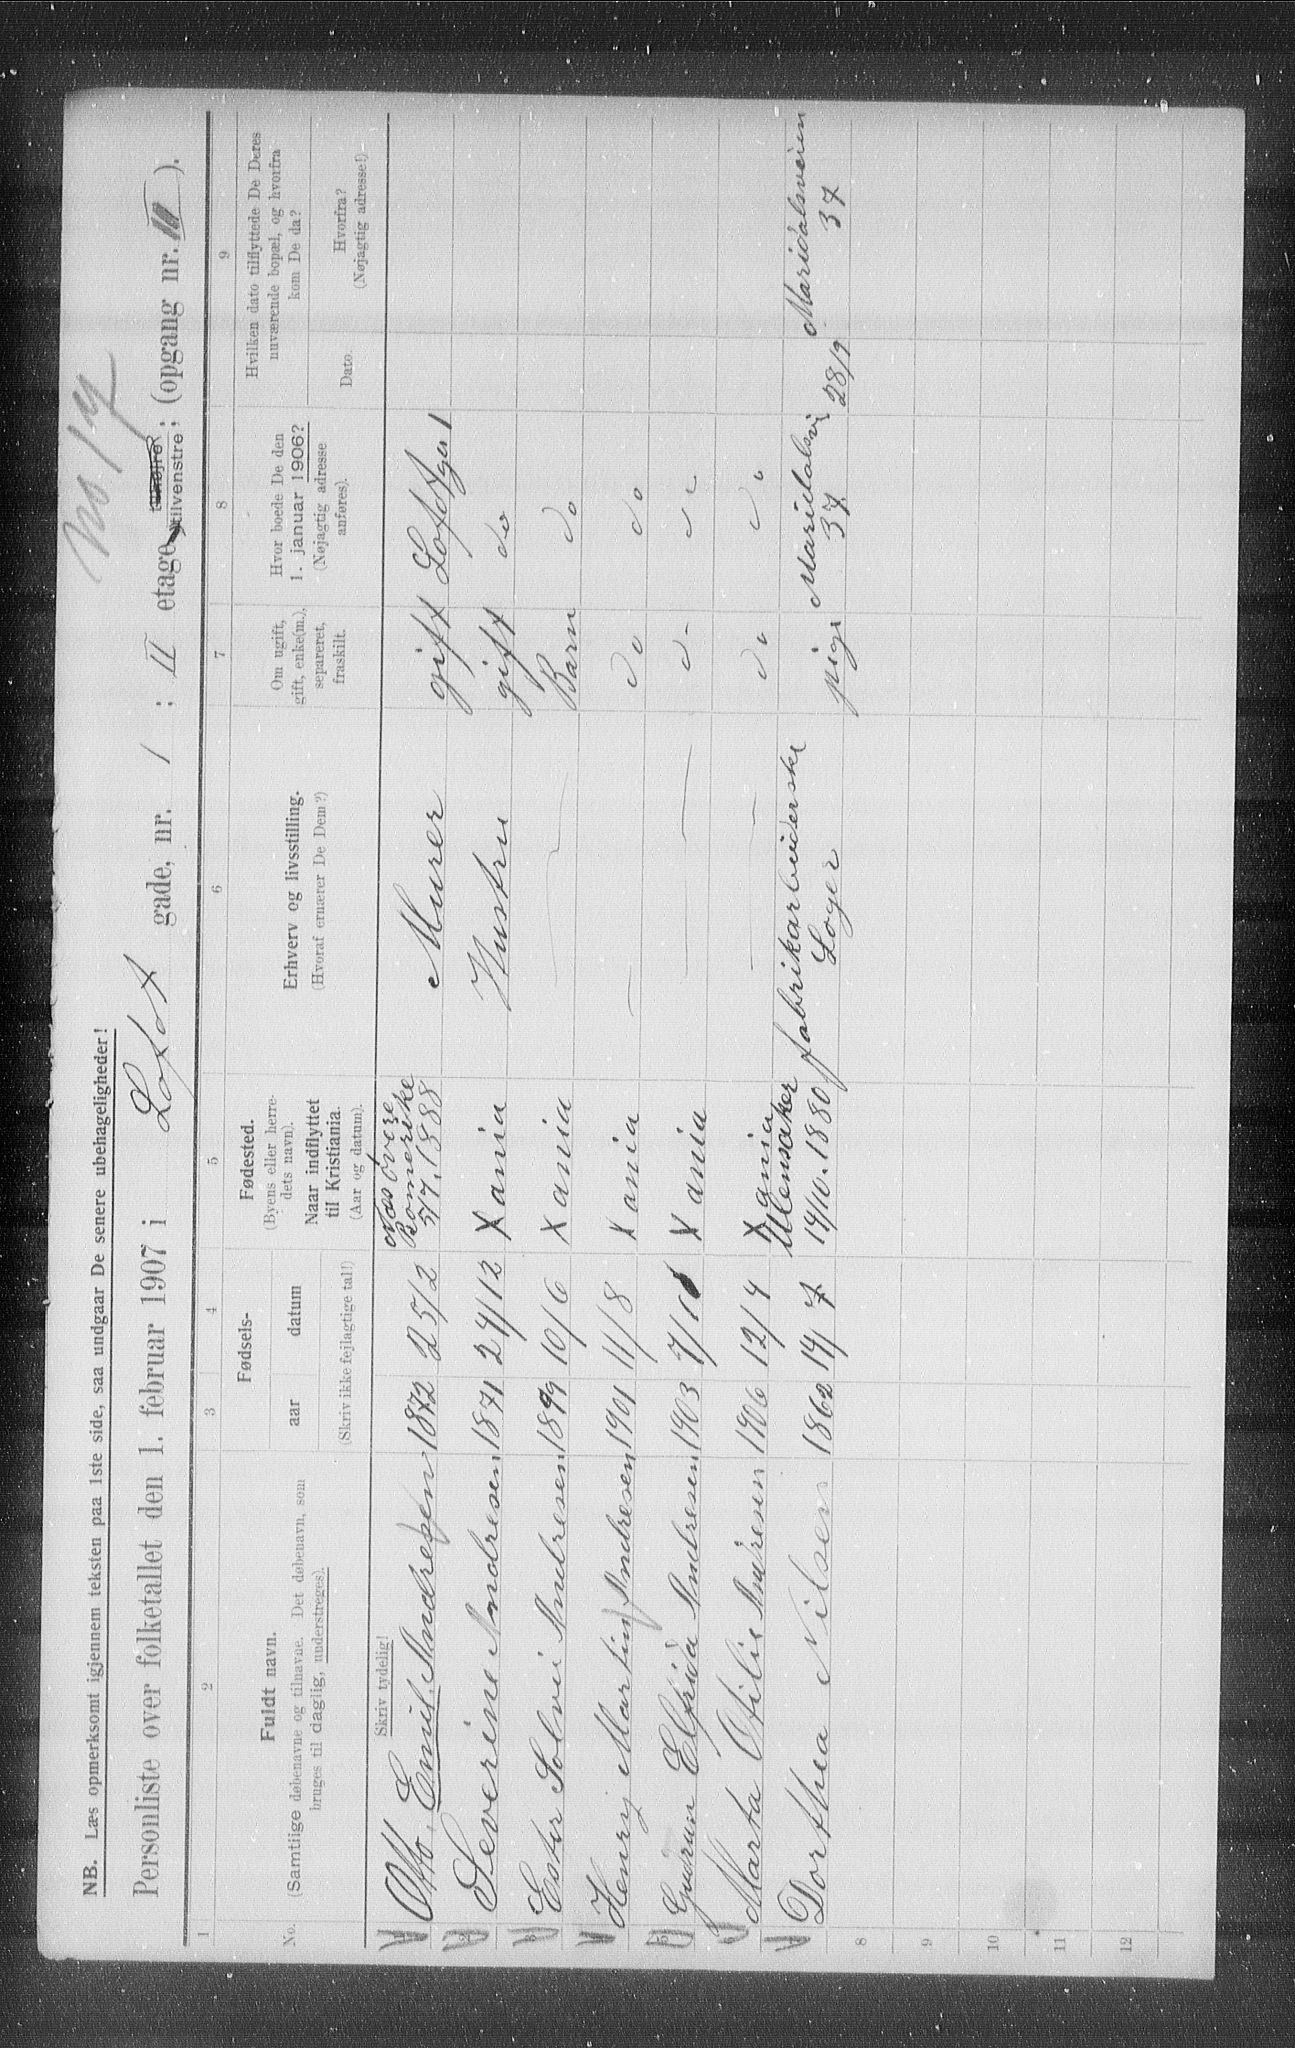 NB. Læs opmerksomt igjennem teksten paa 1ste side, saa undgaar De senere ubehageligheder!
Personliste over folketallet den 1. februar 1907 i Lofot gade, nr. 1 : II etage tilvenstre; (opgang nr. ).
1 2 3 4 5 6 7 8 9
No.
Fuldt navn.
(Samtlige døbenavne og tilnavne. Det døbenavn, som
bruges til daglig, understreges).
Fødsels-
aar datum
(Skriv ikke fejlagtige tal!)
Fødested.
(Byens eller herre-
dets navn).
Naar indflyttet
til Kristiania.
(Aar og datum).
Erhverv og livsstilling.
(Hvoraf ernærer De Dem?)
Om ugift,
gift, enke(m.),
separeret,
fraskilt.
Hvor boede De den
1. januar 1906?
(Nøjagtig adresse
anføres).
Hvilken dato tilflyttede De Deres
nuværende bopæl, og hvorfra
kom De da?
Dato.
Hvorfra?
(Nøjagtig adresse!)
Skriv tydelig!
Otto Emil Andresen 1872 25/2 Næs Øvre Romerike 5/7. 1888 Murer gift Lofotgs 1
Severine Andresen 1871 24/12 Xania Hustru gift do
Ester Solvei Andresen 1899 10/6 Xania Barn do
Henry Martin Andresen 1901 11/8 Xania do do
Gudrun Elfrida Andresen 1903 7/11 Xania d- d-
Marta Otilie Andresen 1906 12/4 Xania do do
Dorthea Nilsen 1862 14/7 Ullensaker 14/10. 1880 fabrikarbeiderske Loger pige Maridalsv 37 28/9 Maridalsveien 37
8
9
10
11
12